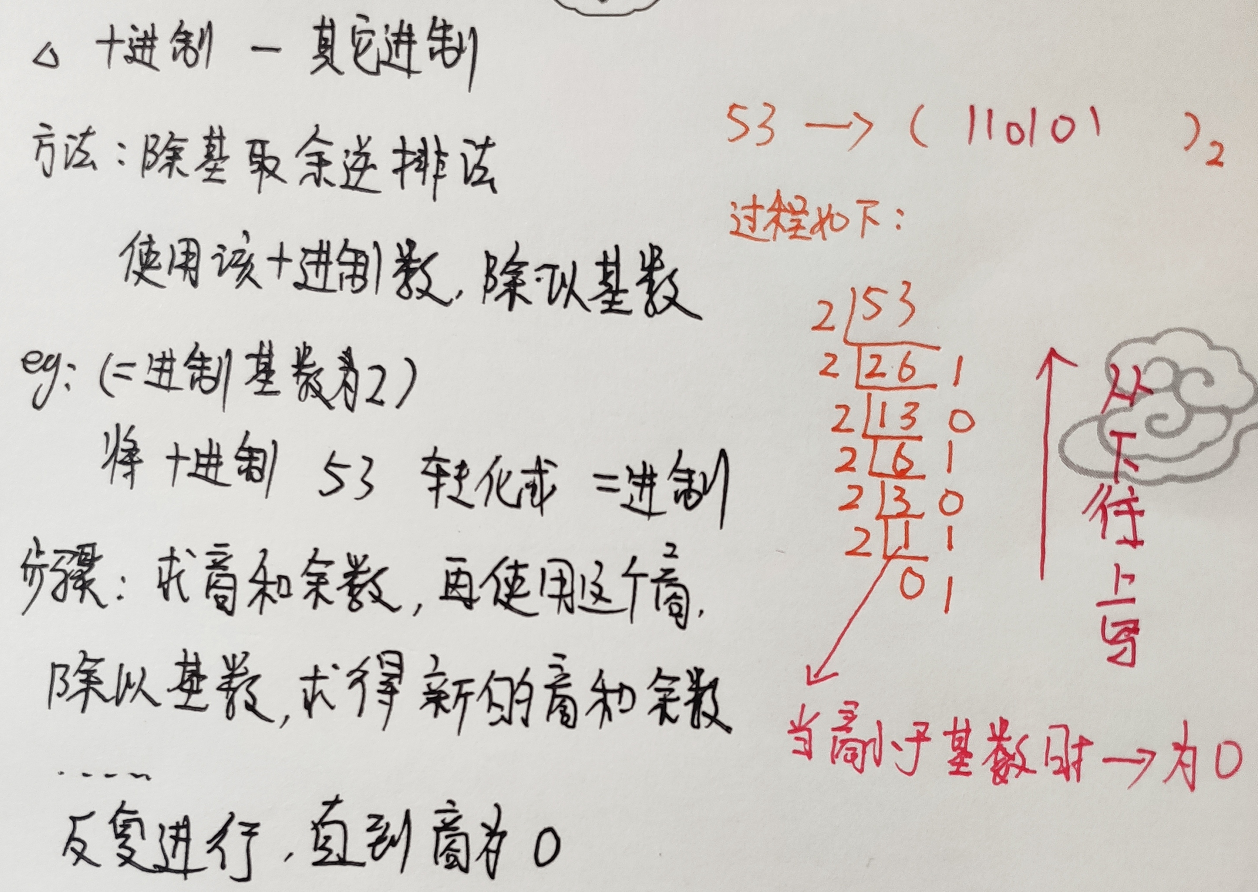 △ 十进制 — 其它进制
方法：除基取余逆排法
使用该十进制数，除以基数
eg：（二进制基数为2）
将十进制 53 转化成 二进制
步骤：求商和余数，再使用这个商，
除以基数，求得新的商和余数
.....
反复进行，直到商为0
53 → ( 110101 )₂
过程如下：
2 53
2 26 1
2 13 0
2 6 1
2 3 0
2 1 1
0 1
从下往上写
当商小于基数时 → 为0